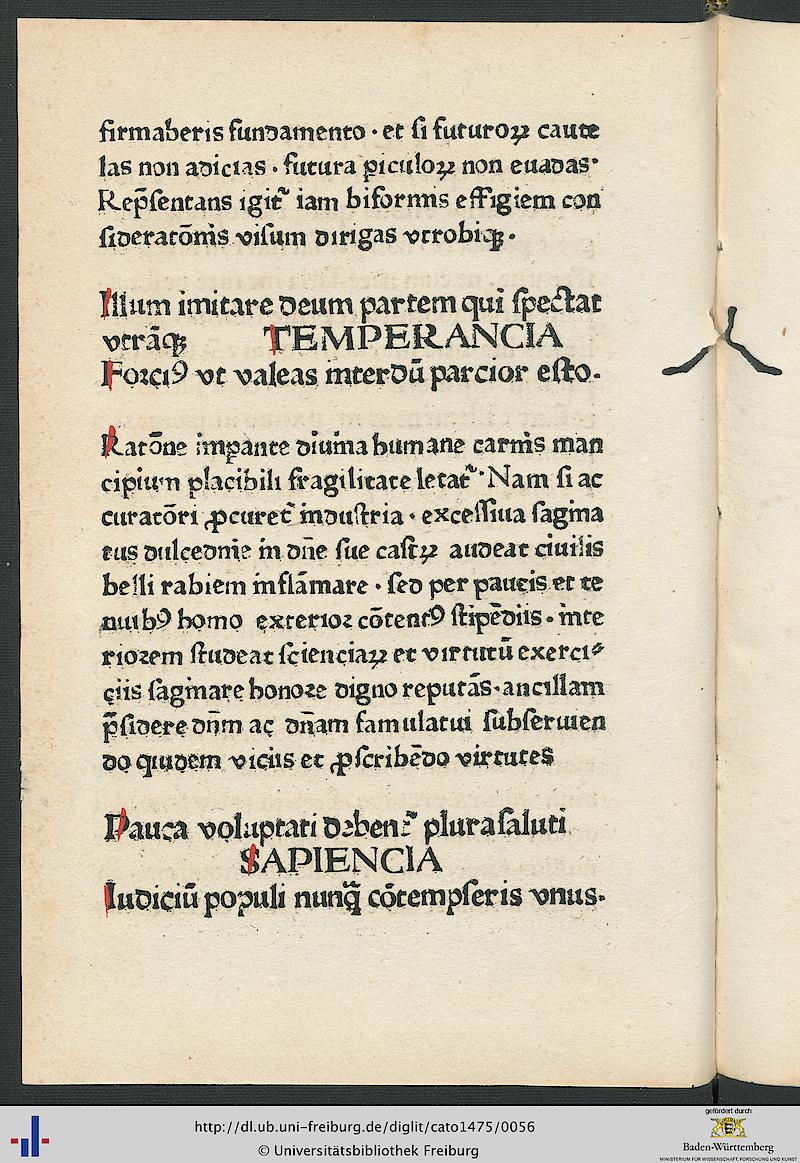 firmaberis fundamento · et ſi futuroꝝ caute
las non adicias · futura ꝑiculoꝝ non euadas·
Rep̃ſentans igit᷑ iam biformis effigiem con
ſideratōnis viſum dirigas vtrobiqꝫ ·
Illum imitare deum partem qui ſpectat
vtrāqꝫ TEMPERANCIA
Forciꝰ vt valeas interdū parcior eſto.
Ratōne impante diuina humane carnis man
cipium placibili fragilitate letat᷑ · Nam ſi ac
curatōri ꝓcuret᷑ induſtria · exceſſiua ſagina
tus dulcedine in dn̄e ſue caſtꝝ audeat ciuilis
belli rabiem inflāmare · ſed per paucis et te
nuibꝰ homo exterior cōtentꝰ ſtipēdiis · inte
riorem ſtudeat ſcienciaꝝ et virtutū exerci⸗
ciis ſaginare honore digno reputās · ancillam
p̄ſidere dn̄m ac dn̄am famulatui ſubſeruien
do quidem viciis et ꝓſcribēdo virtutes
Pauca voluptati debent᷑ plura ſaluti
SAPIENCIA
Iudiciū populi nunꝙ̄ cōtempſeris vnus.
http://dl.ub.uni-freiburg.de/diglit/cato1475/0056
© Universitätsbibliothek Freiburg
gefördert durch
Baden-Württemberg
MINISTERIUM FÜR WISSENSCHAFT, FORSCHUNG UND KUNST